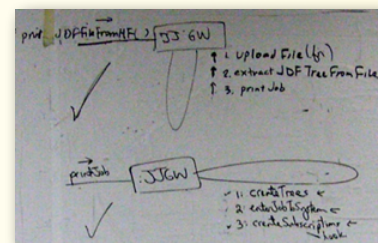 print JDFFileFromMF()
JJGW
1. upload File (fn)
2. extract JDF Tree From File
3. print Job
printJob
JJGW
1: createTrees
2: enterJobToSystem
3: createSubscriptions
hook